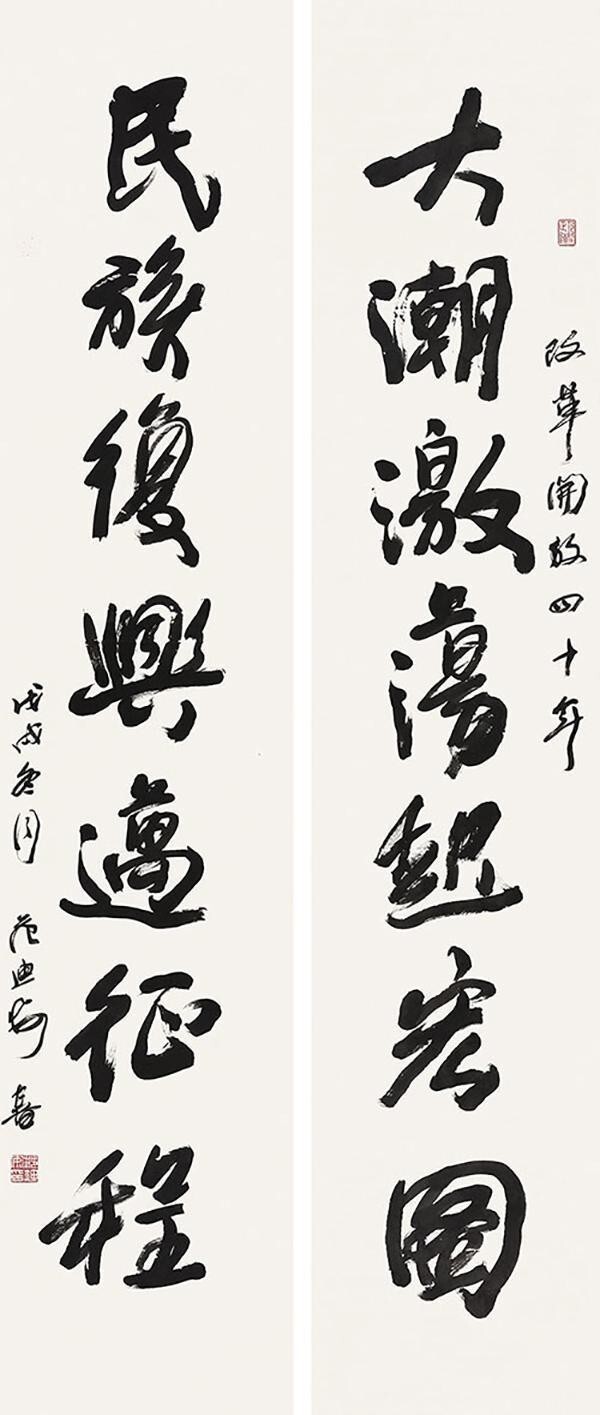 改革開放四十年
大潮激蕩起宏圖
民族復興邁征程
戊戌冬月 范迪安 書